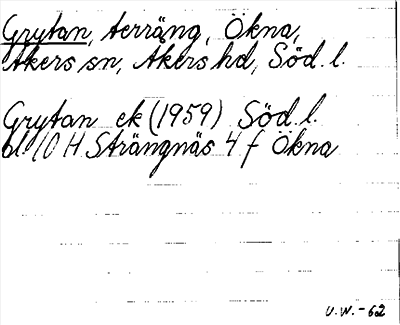 Grytan, terräng, Ökna,
Åkers sn, Åkers hd, Söd. l.
Grytan ek (1959) Söd. l.
bl. 10 H Strängnäs 4 f Ökna
U.W. -62